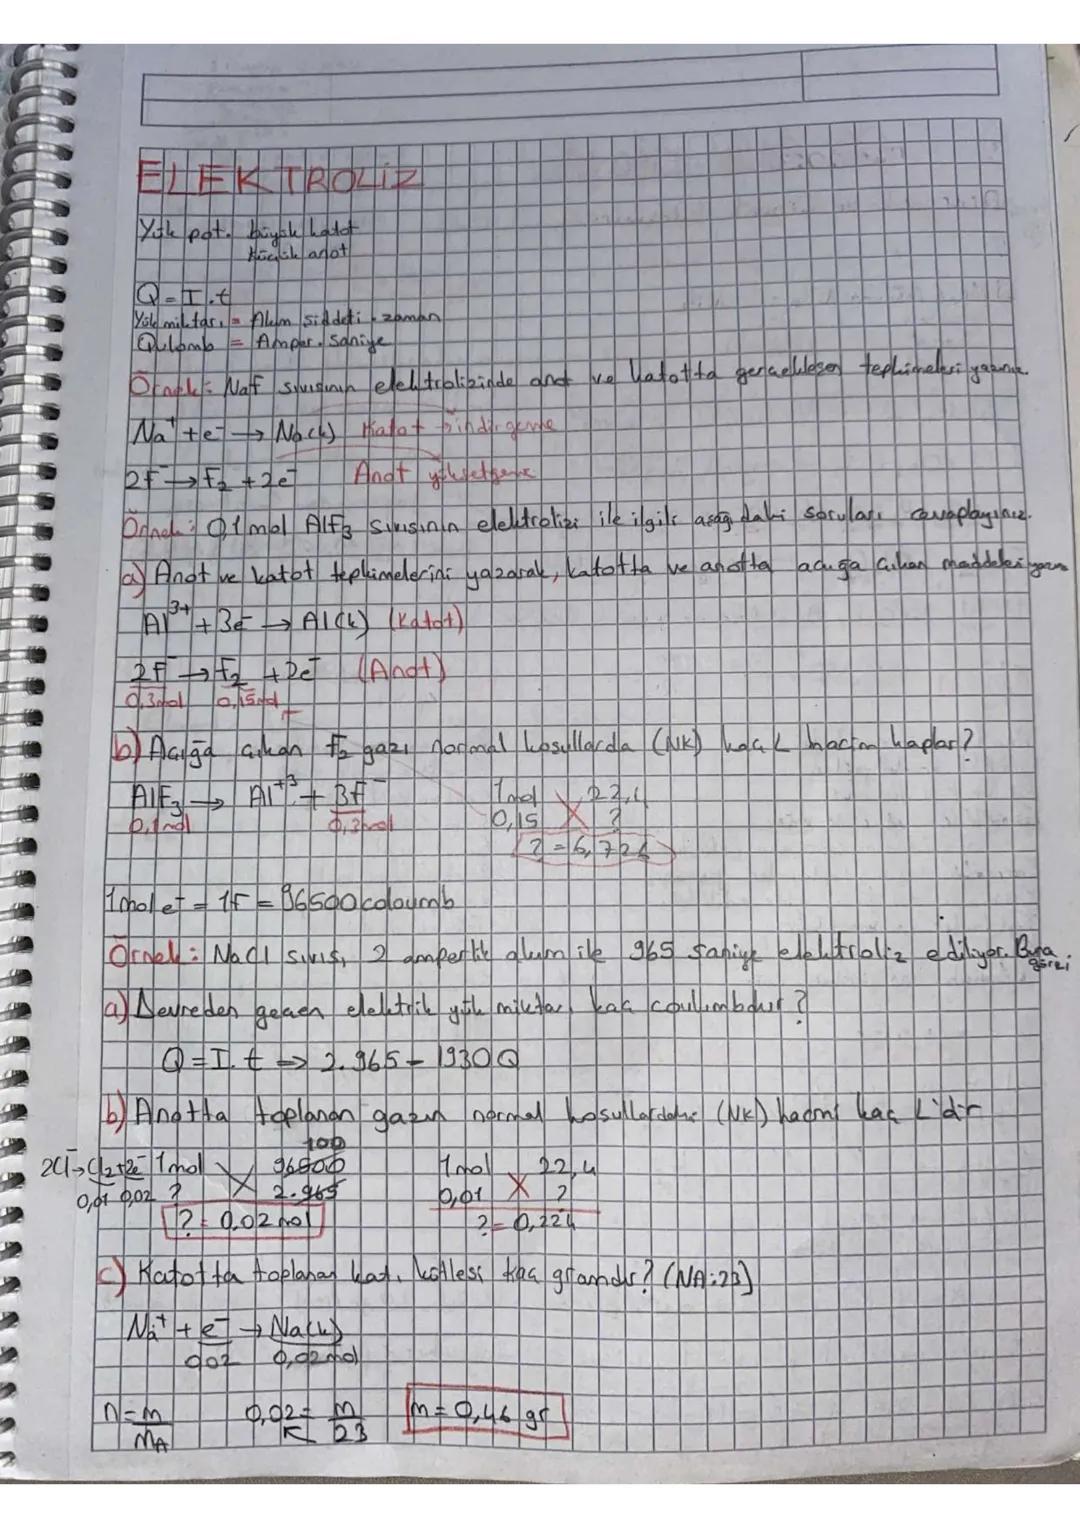 ELEKTROLİZ
Yük pot. büyük katot
Küçük anot
Q = I.t
Yük miktarı = Akım şiddeti . zaman
Qulomb = Amper . Saniye
Örnek: NaF sıvısının elektrolizinde anot ve katotta gerçekleşen tepkimeleri yazınız.
Na⁺ + e⁻ → Na(k) Katot indirgenme
2F⁻ → F₂ + 2e⁻ Anot yükseltgenme
Örnek: 0,1 mol AlF₃ sıvısının elektrolizi ile ilgili aşağıdaki soruları cevaplayınız.
a) Anot ve katot tepkimelerini yazarak, katotta ve anotta açığa çıkan maddeleri yazın
Al³⁺ + 3e⁻ → Al(k) (Katot)
2F⁻ → F₂ + 2e⁻ (Anot)
0,3mol 0,15mol
b) Açığa çıkan F₂ gazı normal koşullarda (NK) kaç L hacim kaplar?
AlF₃ → Al⁺³ + 3F⁻ 1mol 22,4
0,1mol 0,3mol 0,15 ?
? = 6,72L
1 mol e⁻ = 1F = 96500 coloumb
Örnek: NaCl sıvısı, 2 amperlik akım ile 965 saniye elektroliz ediliyor. Buna göre;
a) Devreden geçen elektrik yük miktarı kaç coulumbdur?
Q = I.t → 2.965 = 1930 Q
b) Anotta toplanan gazın normal koşullardaki (NK) hacmi kaç L'dir
100
2Cl⁻ → Cl₂ + 2e⁻ 1mol 96500 1mol 22,4
0,01 0,02 ? 2.965 0,01 ?
? = 0.02 mol ? = 0,224
c) Katotta toplanan katı kütlesi kaç gramdır? (NA:23)
Na⁺ + e⁻ → Na(k)
0,02 0,02mol
n = m/MA 0,02 = m/23 m = 0,46 gr